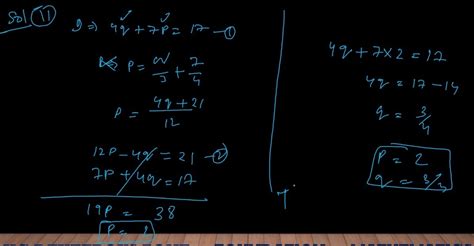 Sol 11
2) ⇒ 4q + 7p = 17 — ①
p = q/3 + 7/4
p = (4q + 21)/12
12p - 4q = 21 — ②
7p + 4q = 17
19p = 38
p = 2
4q + 7×2 = 17
4q = 17 - 14
q = 3/4
p = 2
q =